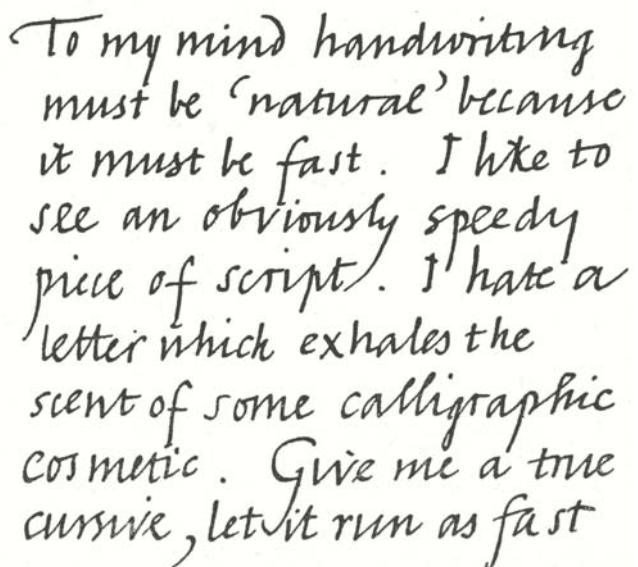 To my mind handwriting
must be ‘natural’ because
it must be fast. I like to
see an obviously speedy
piece of script. I hate a
letter which exhales the
scent of some calligraphic
cosmetic. Give me a true
cursive, let it run as fast